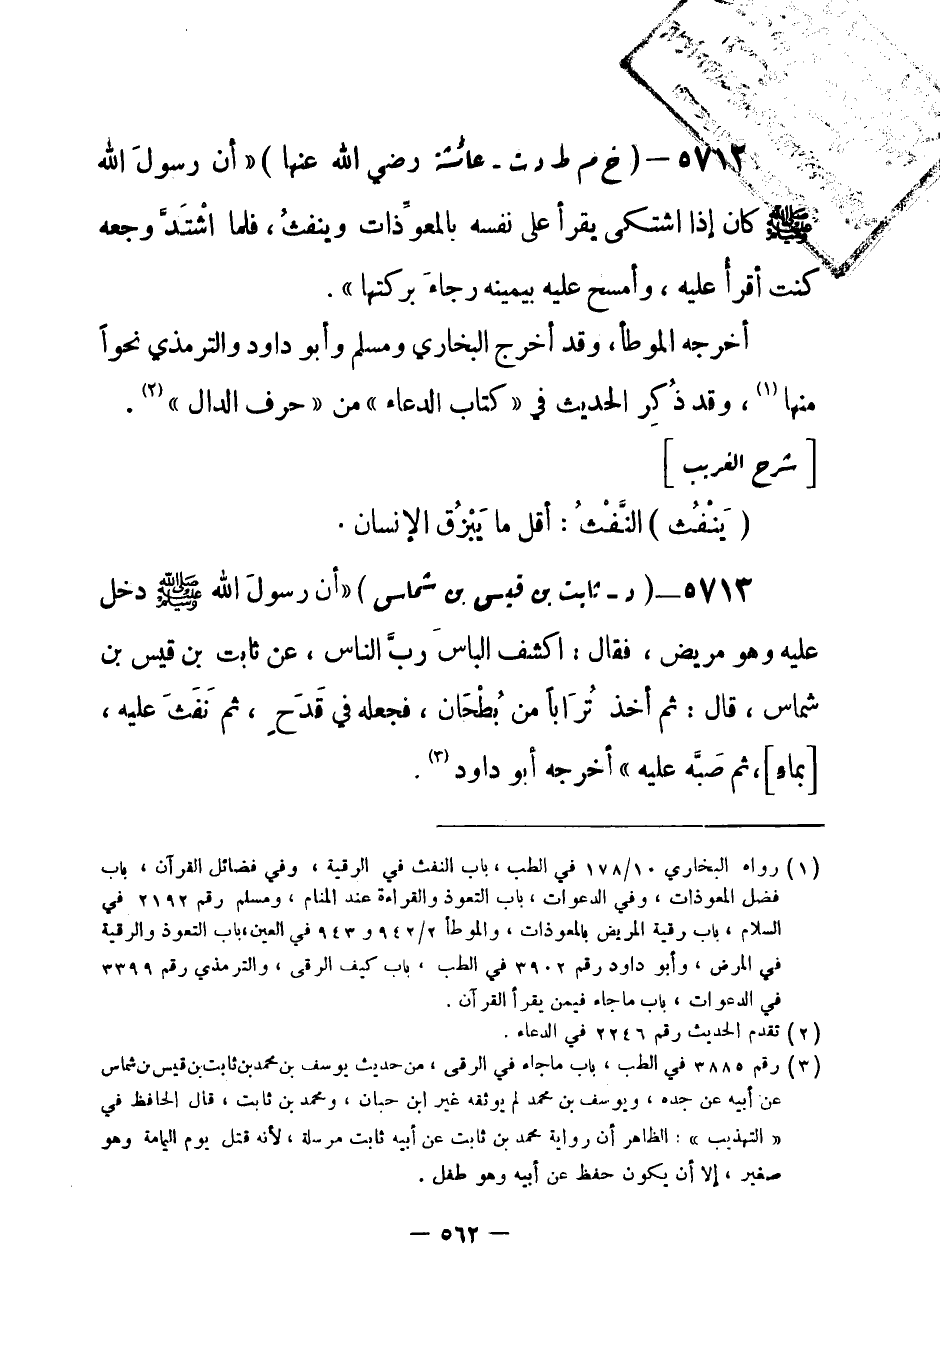 ٥٧١٢ – ( خ م ط د ت - عائشة رضي الله عنها ) « أن رسولَ الله
ﷺ كان إذا اشتكى يقرأ على نفسه بالمعوِّذات وينفثُ ، فلما اشْتَدَّ وجعه
كنت أقرأُ عليه ، وأمسح عليه بيمينه رجاءَ بركتها » .
أخرجه الموطأ ، وقد أخرج البخاري ومسلم وأبو داود والترمذي نحواً
منها (١) ، وقد ذُكِر الحديث في « كتاب الدعاء » من « حرف الدال » (٢) .
[ شرح الغريب ]
( يَنْفُث ) النَّفْثُ : أقل ما يَبْزُق الإنسان .
٥٧١٣ – ( د - ثابت بن قيس بن شماس ) « أن رسولَ الله ﷺ دخل
عليه وهو مريض ، فقال : اكشف الباسَ ربَّ الناس ، عن ثابت بن قيس بن
شماس ، قال : ثم أخذ تُرَاباً من بُطْحَان ، فجعله في قَدَحٍ ، ثم نَفَثَ عليه ،
[بماء] ، ثم صَبَّه عليه » أخرجه أبو داود (٣) .
(١) رواه البخاري ١٧٨/١٠ في الطب ، باب النفث في الرقية ، وفي فضائل القرآن ، باب
فضل المعوذات ، وفي الدعوات ، باب التعوذ والقراءة عند المنام ، ومسلم رقم ٢١٩٢ في
السلام ، باب رقية المريض بالمعوذات ، والموطأ ٩٤٢/٢ و ٩٤٣ في العين ، باب التعوذ والرقية
في المرض ، وأبو داود رقم ٣٩٠٢ في الطب ، باب كيف الرقى ، والترمذي رقم ٣٣٩٩
في الدعوات ، باب ماجاء فيمن يقرأ القرآن .
(٢) تقدم الحديث رقم ٢٢٤٦ في الدعاء .
(٣) رقم ٣٨٨٥ في الطب ، باب ماجاء في الرقى ، من حديث يوسف بن محمد بن ثابت بن قيس بن شماس
عن أبيه عن جده ، ويوسف بن محمد لم يوثقه غير ابن حبان ، ومحمد بن ثابت ، قال الحافظ في
« التهذيب » : الظاهر أن رواية محمد بن ثابت عن أبيه ثابت مرسلة ، لأنه قتل يوم اليمامة وهو
صغير ، إلا أن يكون حفظ عن أبيه وهو طفل .
– ٥٦٢ –